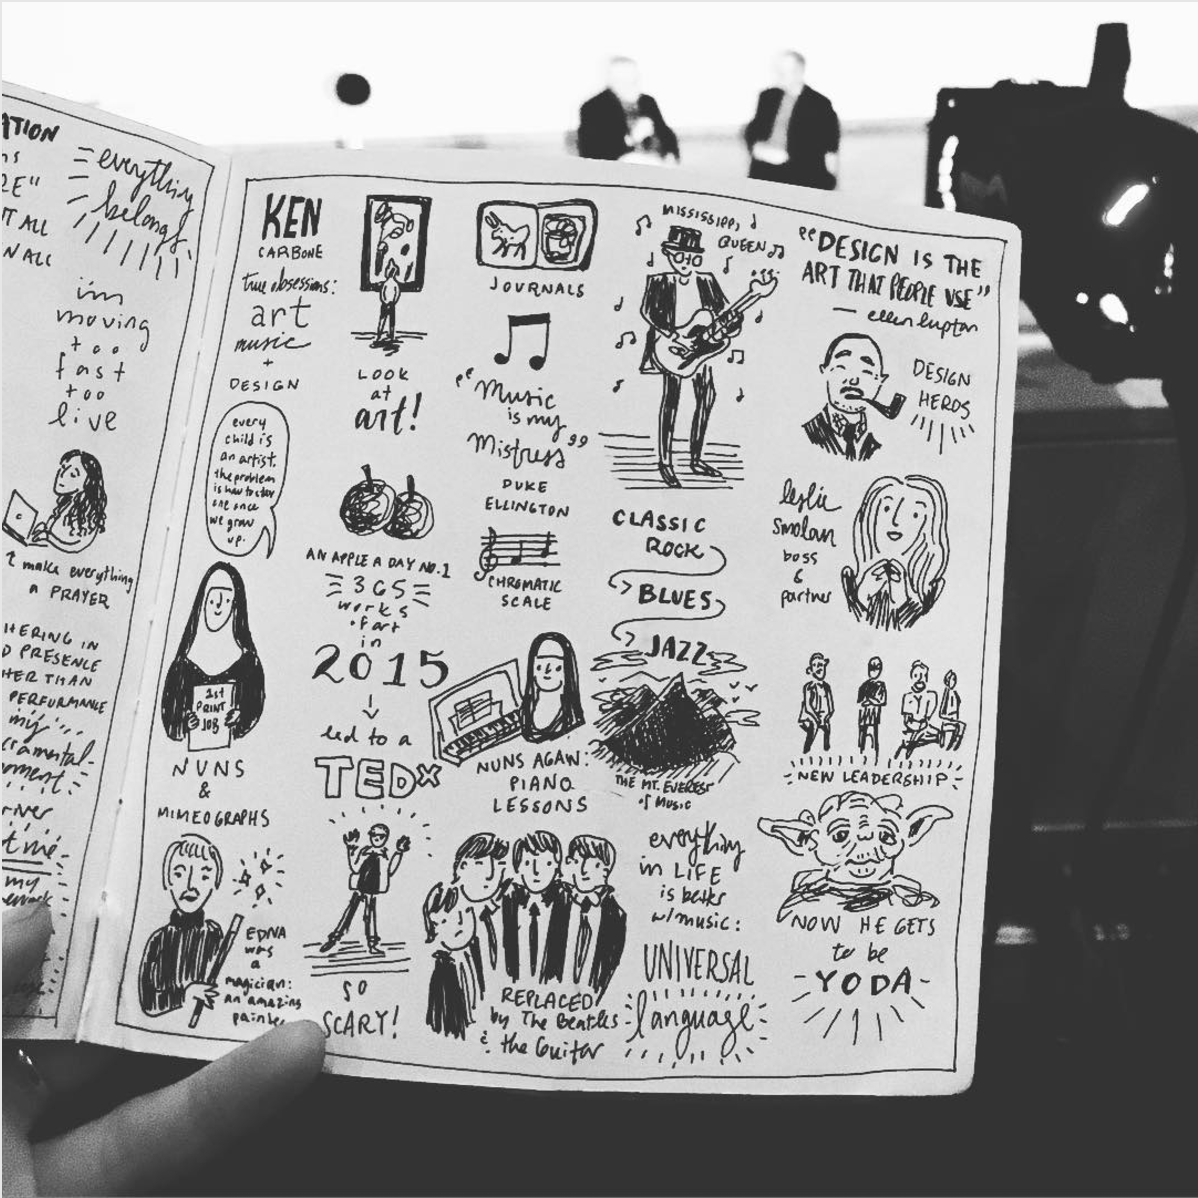 ATION
everything
belongs
"
T ALL
N ALL
i'm
moving
too
fast
too
live
I make everything
a PRAYER
HERING IN
D PRESENCE
HER THAN
PERFORMANCE
my
cramental
oment.
river
t me
my
ework
KEN
CARBONE
true obsessions:
art
music
+
DESIGN
every
child is
an artist.
the problem
is how to stay
one once
we grow
up.
1st
PRINT
JOB
NUNS
&
MIMEOGRAPHS
EDNA
was
a
magician:
an amazing
painter
LOOK
at
art!
AN APPLE A DAY NO.1
365
works
of art
in
2015
led to a
TEDx
SO
SCARY!
JOURNALS
"Music
is my
Mistress"
DUKE
ELLINGTON
CHROMATIC
SCALE
NUNS AGAIN:
PIANO
LESSONS
REPLACED
by The Beatles
& the Guitar
MISSISSIPPI
QUEEN
CLASSIC
ROCK
BLUES
JAZZ
THE MT. EVEREST
of MUSIC
everything
in LIFE
is better
w/music:
UNIVERSAL
language
"DESIGN IS THE
ART THAT PEOPLE USE"
— ellen lupton
DESIGN
HEROS
leslie
smolan
boss
&
partner
NEW LEADERSHIP
NOW HE GETS
to be
YODA